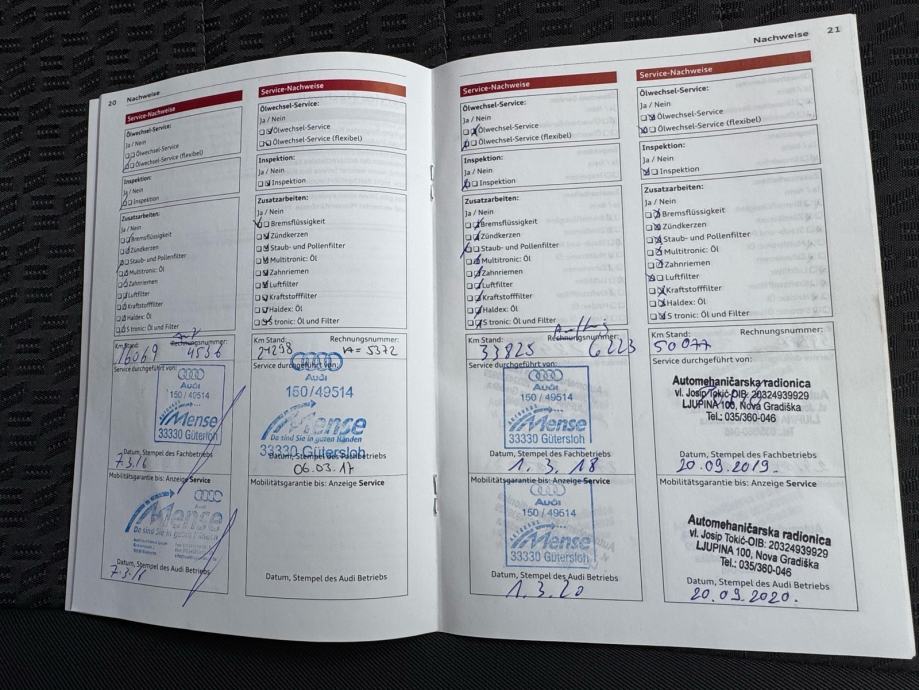 20 Nachweise
Service-Nachweise
Ölwechsel-Service:
Ja / Nein
Ölwechsel-Service
Ölwechsel-Service (flexibel)
Inspektion:
Ja / Nein
Inspektion
Zusatzarbeiten:
Ja / Nein
Bremsflüssigkeit
Zündkerzen
Staub- und Pollenfilter
Multitronic: Öl
Zahnriemen
Luftfilter
Kraftstofffilter
Haldex: Öl
S tronic: Öl und Filter
Km Stand: Rechnungsnummer:
16069 4536
Service durchgeführt von:
Audi
150 / 49514
Mense
33330 Gütersloh
Datum, Stempel des Fachbetriebs
7.3.16
Mobilitätsgarantie bis: Anzeige Service
Audi
Mense
Da sind Sie in guten Händen
Datum, Stempel des Audi Betriebs
7.3.18
Service-Nachweise
Ölwechsel-Service:
Ja / Nein
Ölwechsel-Service
Ölwechsel-Service (flexibel)
Inspektion:
Ja / Nein
Inspektion
Zusatzarbeiten:
Ja / Nein
Bremsflüssigkeit
Zündkerzen
Staub- und Pollenfilter
Multitronic: Öl
Zahnriemen
Luftfilter
Kraftstofffilter
Haldex: Öl
S tronic: Öl und Filter
Km Stand: Rechnungsnummer:
21298 = 5372
Service durchgeführt von:
Audi
150/49514
Mense
Da sind Sie in guten Händen
33330 Gütersloh
Datum, Stempel des Fachbetriebs
06.03.17
Mobilitätsgarantie bis: Anzeige Service
Datum, Stempel des Audi Betriebs
Nachweise 21
Service-Nachweise
Ölwechsel-Service:
Ja / Nein
Ölwechsel-Service
Ölwechsel-Service (flexibel)
Inspektion:
Ja / Nein
Inspektion
Zusatzarbeiten:
Ja / Nein
Bremsflüssigkeit
Zündkerzen
Staub- und Pollenfilter
Multitronic: Öl
Zahnriemen
Luftfilter
Kraftstofffilter
Haldex: Öl
S tronic: Öl und Filter
Km Stand: Rechnungsnummer:
33825 6223
Service durchgeführt von:
Audi
150 / 49514
Mense
33330 Gütersloh
Datum, Stempel des Fachbetriebs
1. 3. 18
Mobilitätsgarantie bis: Anzeige Service
Audi
150 / 49514
Mense
33330 Gütersloh
Datum, Stempel des Audi Betriebs
1. 3. 20
Service-Nachweise
Ölwechsel-Service:
Ja / Nein
Ölwechsel-Service
Ölwechsel-Service (flexibel)
Inspektion:
Ja / Nein
Inspektion
Zusatzarbeiten:
Ja / Nein
Bremsflüssigkeit
Zündkerzen
Staub- und Pollenfilter
Multitronic: Öl
Zahnriemen
Luftfilter
Kraftstofffilter
Haldex: Öl
S tronic: Öl und Filter
Km Stand: Rechnungsnummer:
50077
Service durchgeführt von:
Automehaničarska radionica
vl. Josip Tokić-OIB: 20324939929
LJUPINA 100, Nova Gradiška
Tel.: 035/360-046
Datum, Stempel des Fachbetriebs
20.09.2019.
Mobilitätsgarantie bis: Anzeige Service
Automehaničarska radionica
vl. Josip Tokić-OIB: 20324939929
LJUPINA 100, Nova Gradiška
Tel.: 035/360-046
Datum, Stempel des Audi Betriebs
20.09.2020.